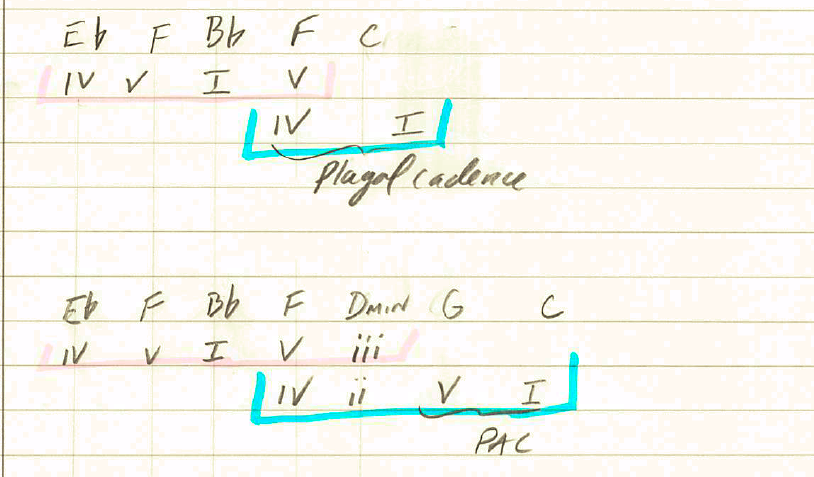 Eb F Bb F C
IV V I V
IV I
Plagal cadence
Eb F Bb F DMIN G C
IV V I V iii
IV ii V I
PAC